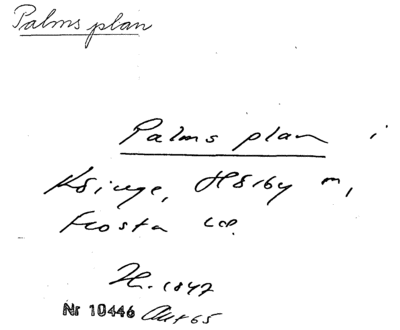 Palms plan
Palms plan i
Köinge, Hörby
Frosta
1847
Nr 10446 Akt 65